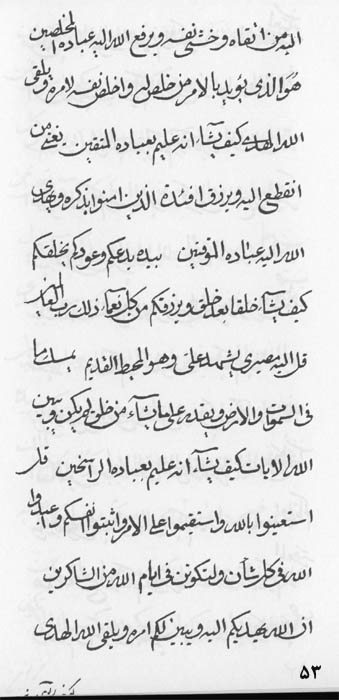 اليه من اتقاه وخشى نفسه ويرفع الله اليه عباده المخلصين
هو الذى يؤيد بالامر من خلص له واخلص نفسه لامره ويلقى
الله الهدى كيف يشآء انه عليم بعباده المتقين يغنى من
انقطع اليه ويرزق افئدة الذين امنوا بذكره ويهدى
الله اليه عباده الموقنين بيده بدعكم وعودكم يخلقكم
كيف يشآء خلقا بعد خلق ويرزقكم من كل نعمآء ذلك رب العالمين
قل اليه مصيرى يشهد على وهو المحيط القديم يمسك ما
فى السموات والارض ويقدر على ما يشآء من خلق لم يكن ويبين
الله الايات كيف يشآء انه عليم بعباده الراسخين قل
استعينوا بالله واستقيموا على الامر واثبتوا انفسكم واعبدوا
الله فى كل شأن ولتكونن فى ايام الله من الشاكرين
ان الله يهديكم اليه ويبين لكم امره ويلقى الله الهدى
۵۳